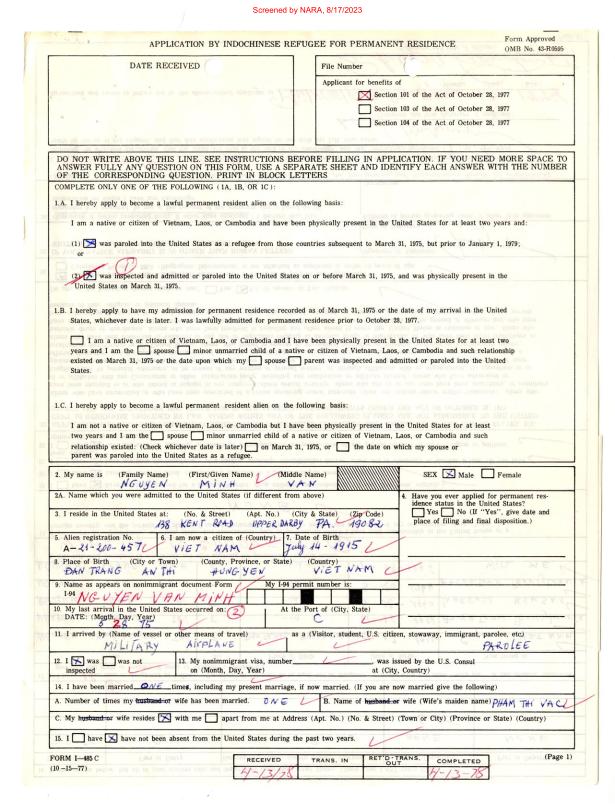 Screened by NARA, 8/17/2023
APPLICATION BY INDOCHINESE REFUGEE FOR PERMANENT RESIDENCE
Form Approved
OMB No. 43-R0595
DATE RECEIVED
File Number
Applicant for benefits of
Section 101 of the Act of October 28, 1977
Section 103 of the Act of October 28, 1977
Section 104 of the Act of October 28, 1977
DO NOT WRITE ABOVE THIS LINE. SEE INSTRUCTIONS BEFORE FILLING IN APPLICATION. IF YOU NEED MORE SPACE TO
ANSWER FULLY ANY QUESTION ON THIS FORM, USE A SEPARATE SHEET AND IDENTIFY EACH ANSWER WITH THE NUMBER
OF THE CORRESPONDING QUESTION. PRINT IN BLOCK LETTERS
COMPLETE ONLY ONE OF THE FOLLOWING (1A, 1B, OR 1C):
1.A. I hereby apply to become a lawful permanent resident alien on the following basis:
I am a native or citizen of Vietnam, Laos, or Cambodia and have been physically present in the United States for at least two years and:
(1) was paroled into the United States as a refugee from those countries subsequent to March 31, 1975, but prior to January 1, 1979;
or
1
(2) was inspected and admitted or paroled into the United States on or before March 31, 1975, and was physically present in the
United States on March 31, 1975.
1.B. I hereby apply to have my admission for permanent residence recorded as of March 31, 1975 or the date of my arrival in the United
States, whichever date is later. I was lawfully admitted for permanent residence prior to October 28, 1977.
I am a native or citizen of Vietnam, Laos, or Cambodia and I have been physically present in the United States for at least two
years and I am the spouse minor unmarried child of a native or citizen of Vietnam, Laos, or Cambodia and such relationship
existed on March 31, 1975 or the date upon which my spouse parent was inspected and admitted or paroled into the United
States.
1.C. I hereby apply to become a lawful permanent resident alien on the following basis:
I am not a native or citizen of Vietnam, Laos, or Cambodia but I have been physically present in the United States for at least
two years and I am the spouse minor unmarried child of a native or citizen of Vietnam, Laos, or Cambodia and such
relationship existed: (Check whichever date is later) on March 31, 1975, or the date on which my spouse or
parent was paroled into the United States as a refugee.
2. My name is (Family Name) (First/Given Name) (Middle Name)
NGUYEN MINH VAN
SEX Male Female
2A. Name which you were admitted to the United States (if different from above)
4. Have you ever applied for permanent res-
idence status in the United States?
Yes No (If "Yes", give date and
place of filing and final disposition.)
3. I reside in the United States at: (No. & Street) (Apt. No.) (City & State) (Zip Code)
138 KENT ROAD UPPER DARBY PA. 19082
5. Alien registration No.
A-21-200-457
6. I am now a citizen of (Country)
VIET NAM
7. Date of Birth
July 14-1915
8. Place of Birth (City or Town) (County, Province, or State) (Country)
ĐAN TRANG AN THI HUNG YEN VIET NAM
9. Name as appears on nonimmigrant document Form
I-94 NGUYEN VAN MINH
My I-94 permit number is:
10. My last arrival in the United States occurred on: 2
DATE: (Month, Day, Year)
5 28 75
At the Port of (City, State)
C
11. I arrived by (Name of vessel or other means of travel) as a (Visitor, student, U.S. citizen, stowaway, immigrant, parolee, etc)
MILITARY AIRPLANE PAROLEE
12. I was was not
inspected
13. My nonimmigrant visa, number was issued by the U.S. Consul
on (Month, Day, Year) at (City, Country)
14. I have been married ONE times, including my present marriage, if now married. (If you are now married give the following)
A. Number of times my husband or wife has been married. ONE
B. Name of husband or wife (Wife's maiden name) PHAM THI VACL
C. My husband or wife resides with me apart from me at Address (Apt. No.) (No. & Street) (Town or City) (Province or State) (Country)
15. I have have not been absent from the United States during the past two years.
FORM I-485 C
(10-15-77)
RECEIVED
4-13/78
TRANS. IN
RET'D-TRANS. OUT
COMPLETED
4-13-78
(Page 1)